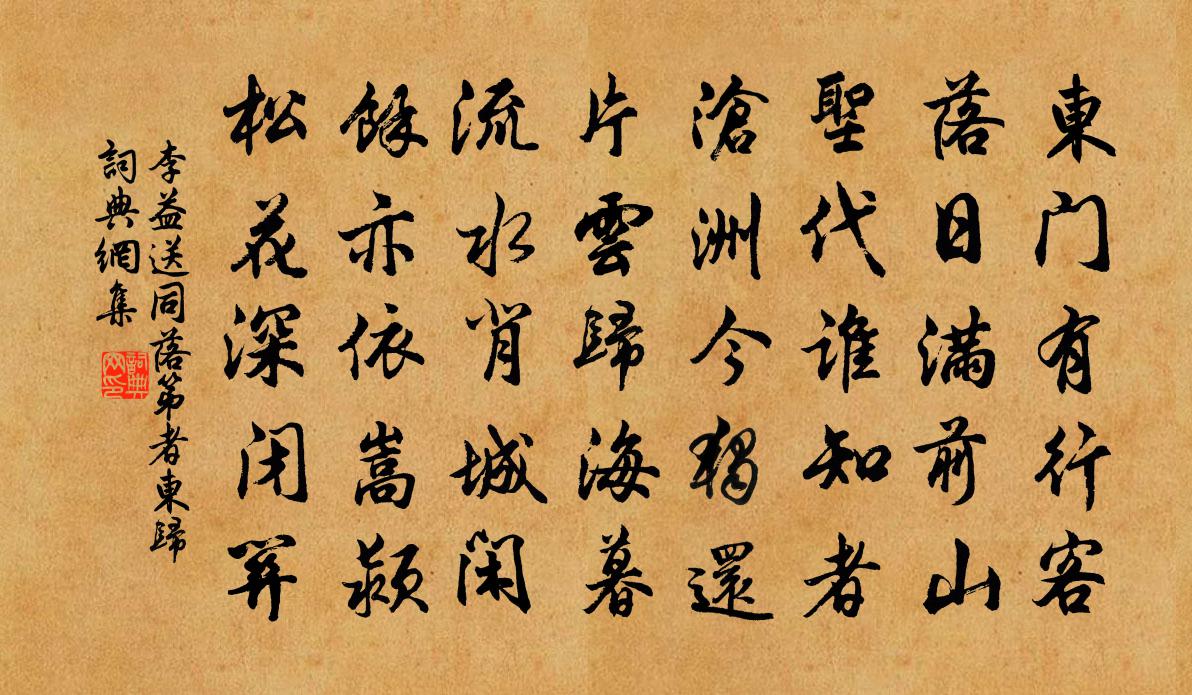 東門有行客
落日滿前山
聖代誰知者
滄洲今獨還
片雲歸海暮
流水背城閑
餘亦依嵩潁
松花深閉關
李益送同落第者東歸
詞典網集
詞典網印